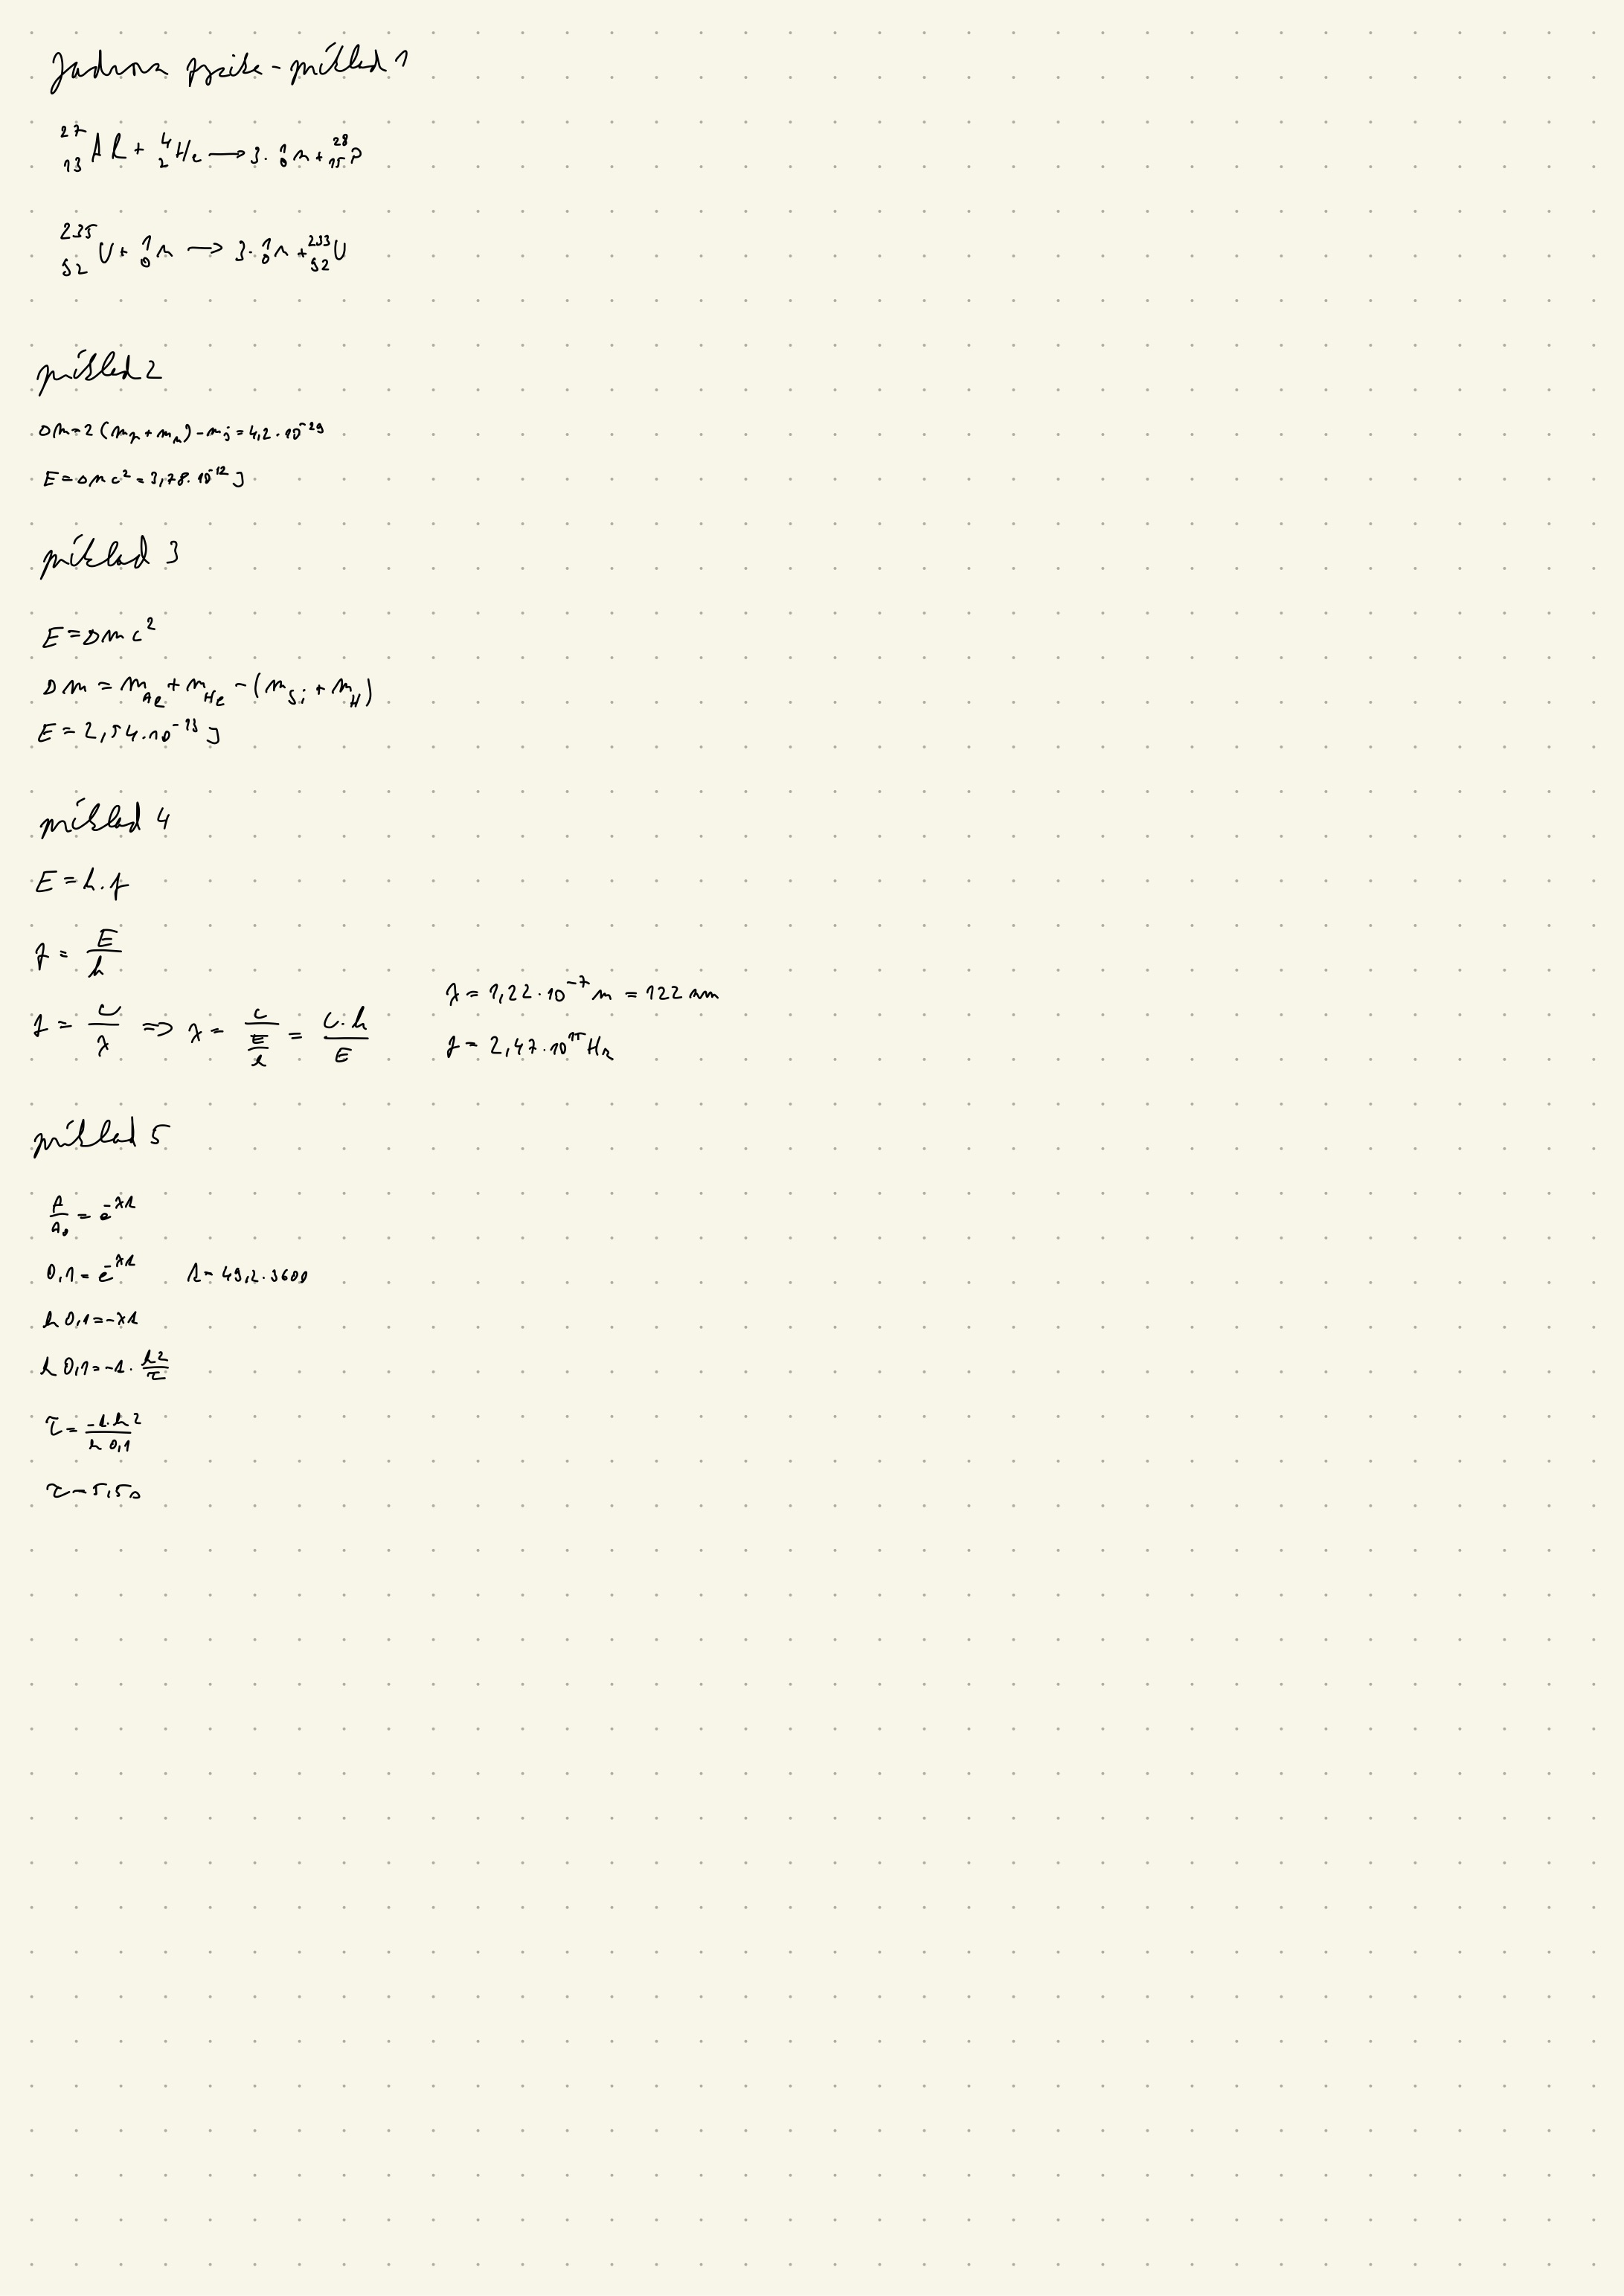 Jadrova fyzika - príklad 1
²⁷₁₃Al + ⁴₂He → 3 · ¹₀n + ²⁸₁₅P
²³⁵₉₂U + ¹₀n → 3 · ¹₀n + ²³³₉₂U
príklad 2
Δm = 2 (mₚ + mₙ) - mⱼ = 4,2 · 10⁻²⁹
E = Δmc² = 3,78 · 10⁻¹² J
príklad 3
E = Δmc²
Δm = m_Al + m_He - (m_Si + m_H)
E = 2,54 · 10⁻¹³ J
príklad 4
E = h · f
f = E/h
f = c/λ => λ = c/(E/h) = c·h/E
λ = 1,22 · 10⁻⁷ m = 122 nm
f = 2,47 · 10¹⁵ Hz
príklad 5
A/A₀ = e^(-λt)
0,1 = e^(-λt) t = 49,2 · 3600
ln 0,1 = -λt
ln 0,1 = -t · ln2/τ
τ = -t · ln 2/ln 0,1
τ = 5,5